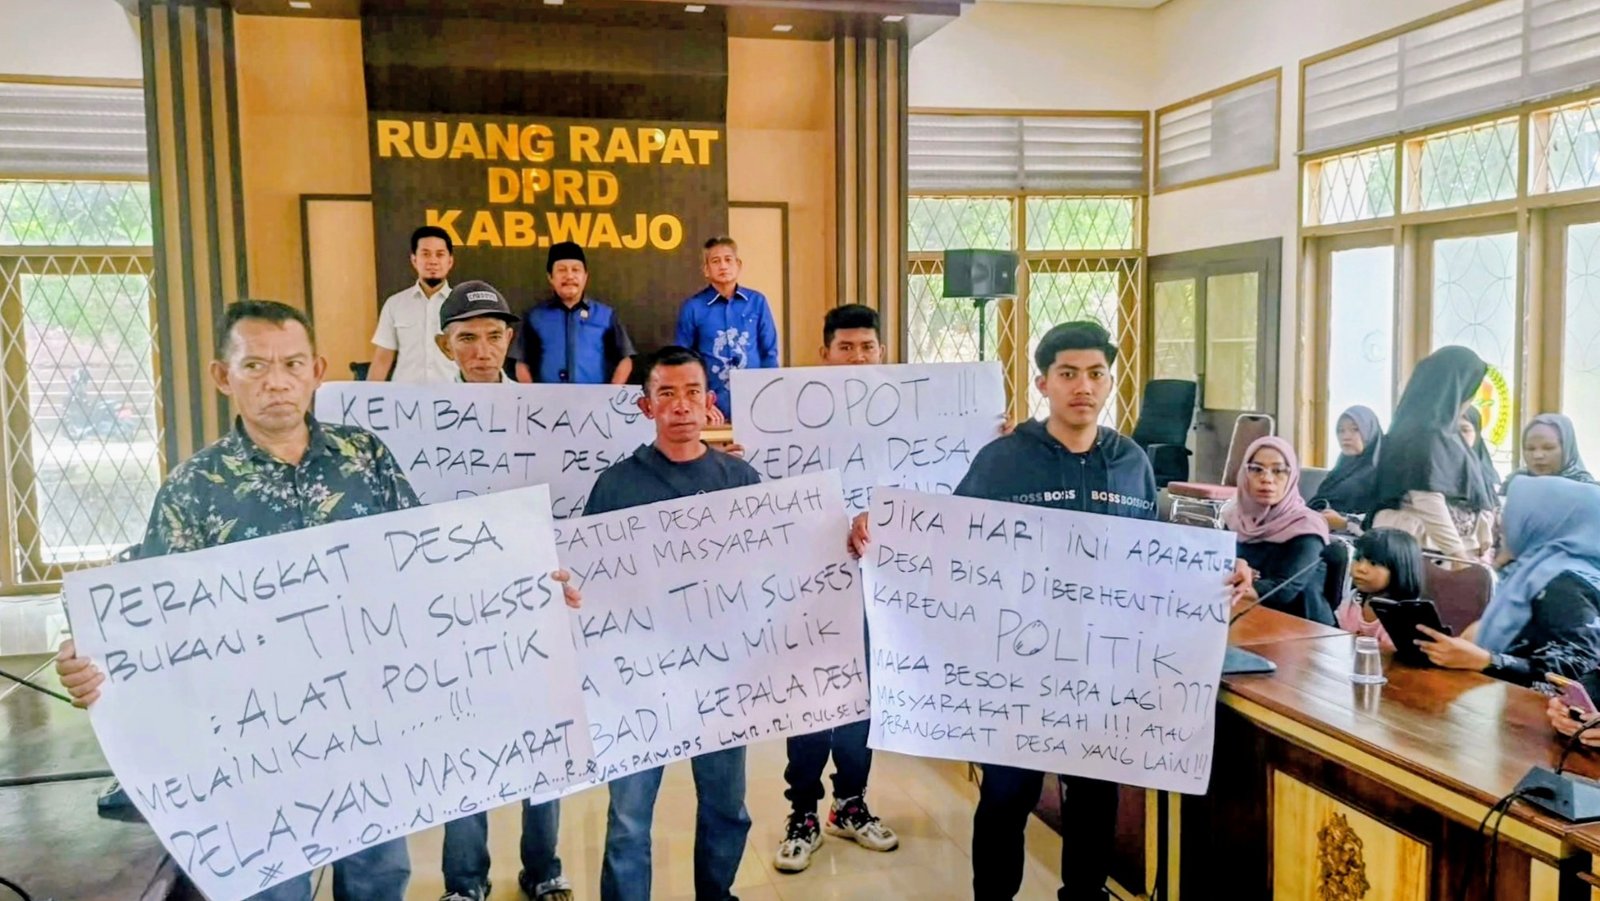 RUANG RAPAT
DPRD
KAB.WAJO
KEMBALIKAN
APARAT DESA
COPOT...!!!
KEPALA DESA
PERANGKAT DESA
BUKAN: TIM SUKSES
: ALAT POLITIK
MELAINKAN ....!!!
PELAYAN MASYARAT
* B...O...N...G...K...A...R
DESA ADALAH
MASYARAT
TIM SUKSES
BUKAN MILIK
KEPALA DESA
WASPAMOPS LMR.RI SUL-SEL
JIKA HARI INI APARATUR
DESA BISA DIBERHENTIKAN
KARENA POLITIK
MAKA BESOK SIAPA LAGI ???
MASYARAKAT KAH !!! ATAU
PERANGKAT DESA YANG LAIN!!!
BOSS BOSS